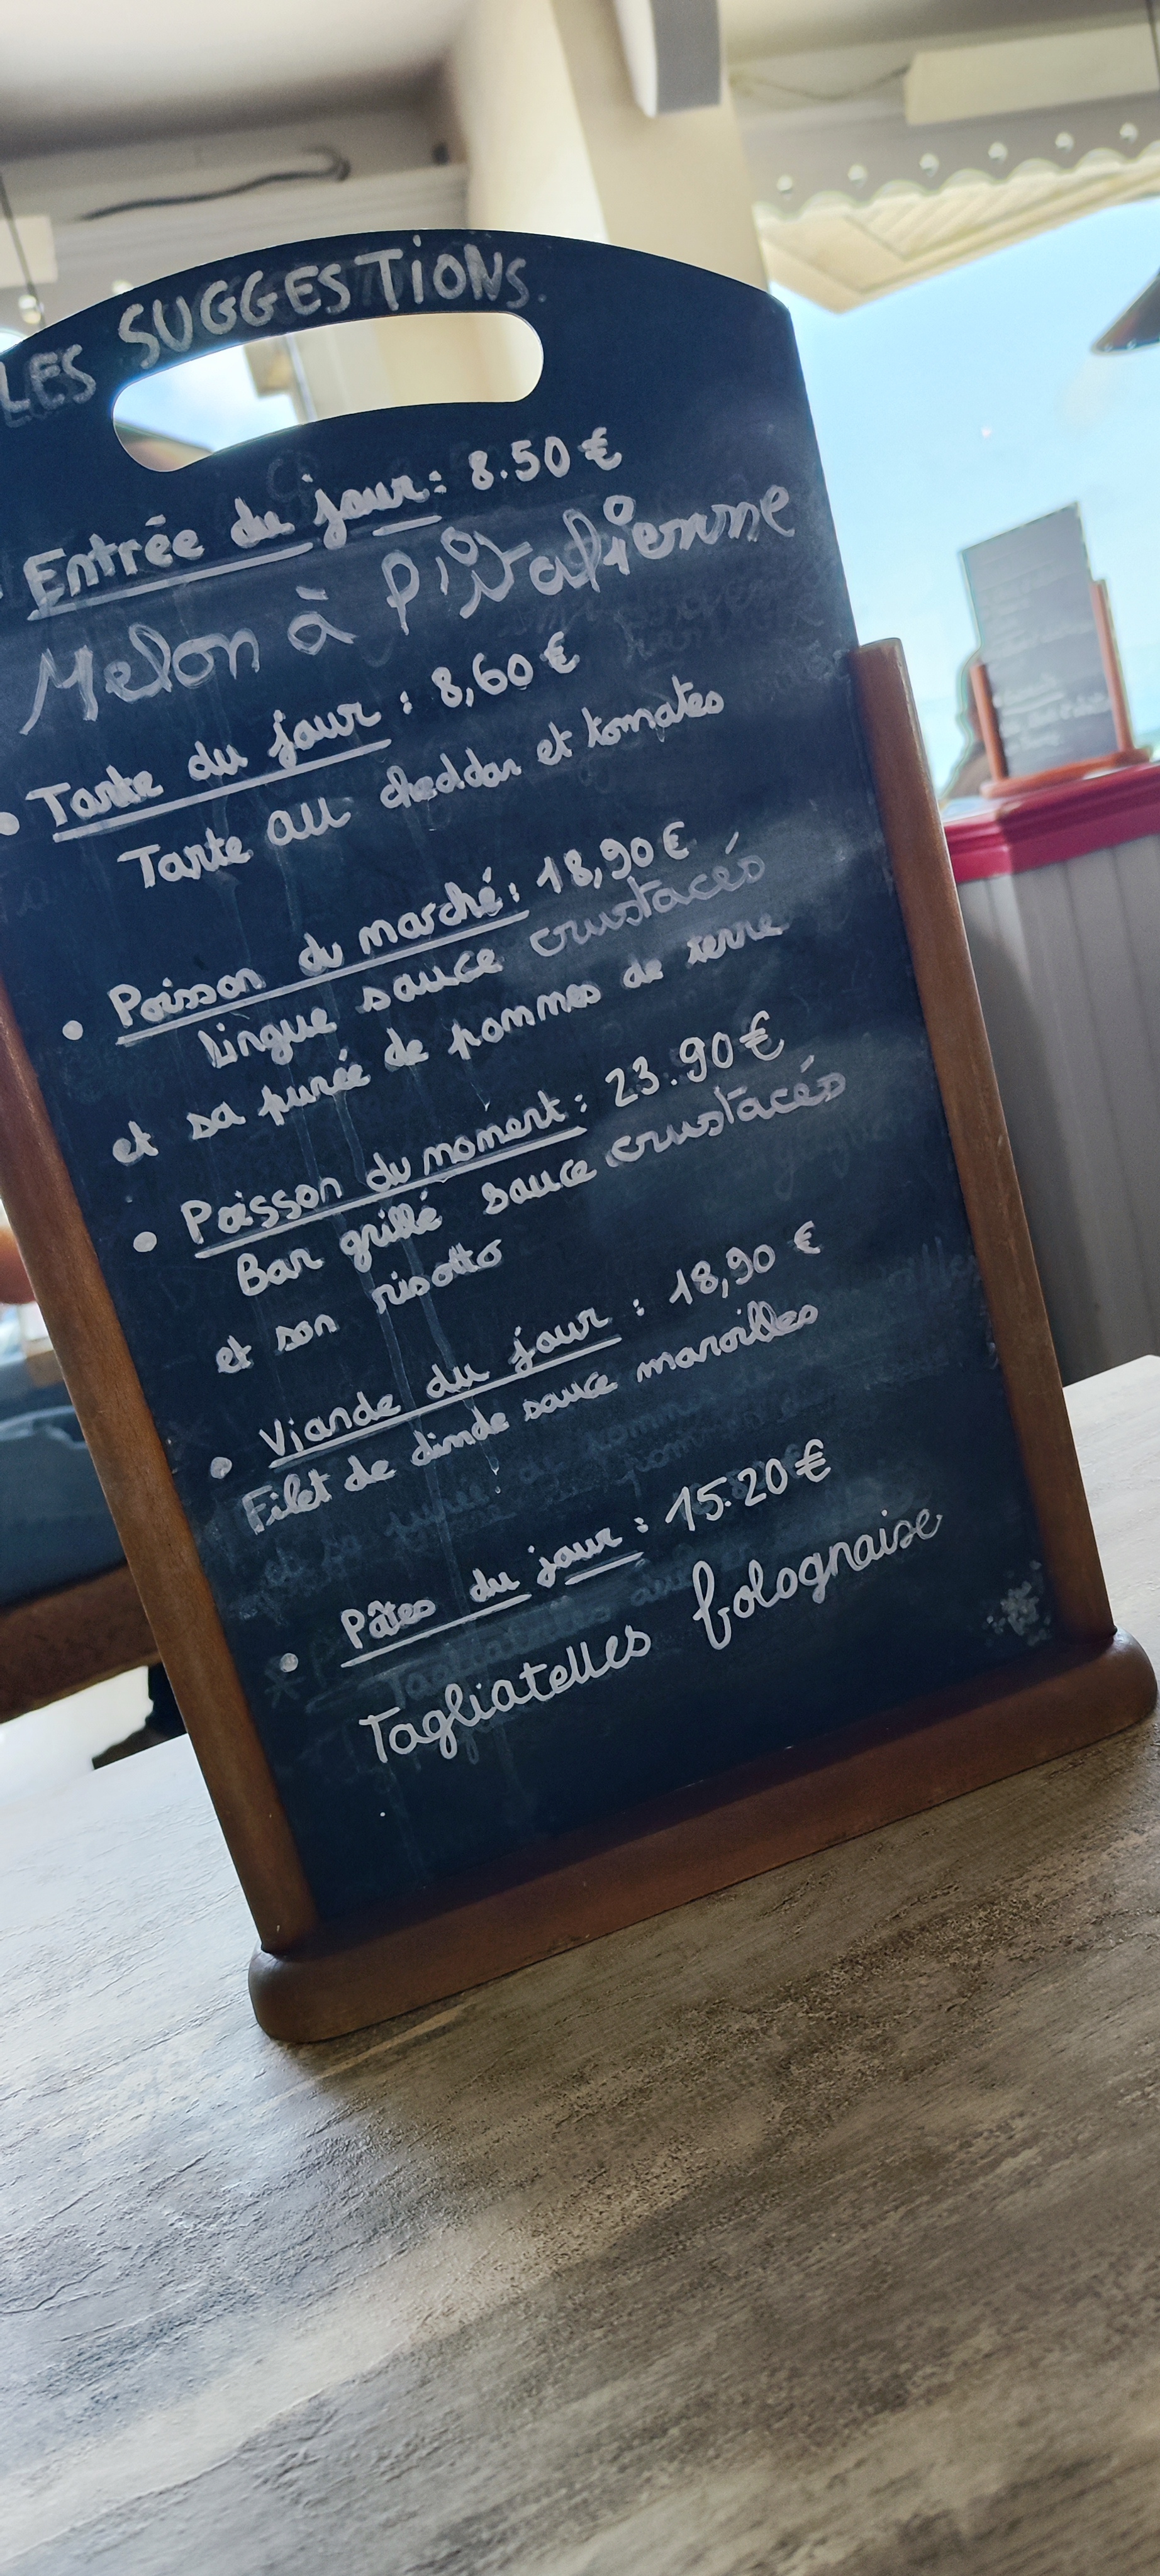 LES SUGGESTIONS.
Entrée du jour : 8.50 €
Melon à l'italienne
• Tarte du jour : 8,60 €
Tarte au cheddar et tomates
• Poisson du marché : 18,90 €
Lingue sauce crustacés
et sa purée de pommes de terre
• Poisson du moment : 23.90 €
Bar grillé sauce crustacés
et son risotto
• Viande du jour : 18,90 €
Filet de dinde sauce maroilles
• Pâtes du jour : 15.20 €
Tagliatelles bolognaise